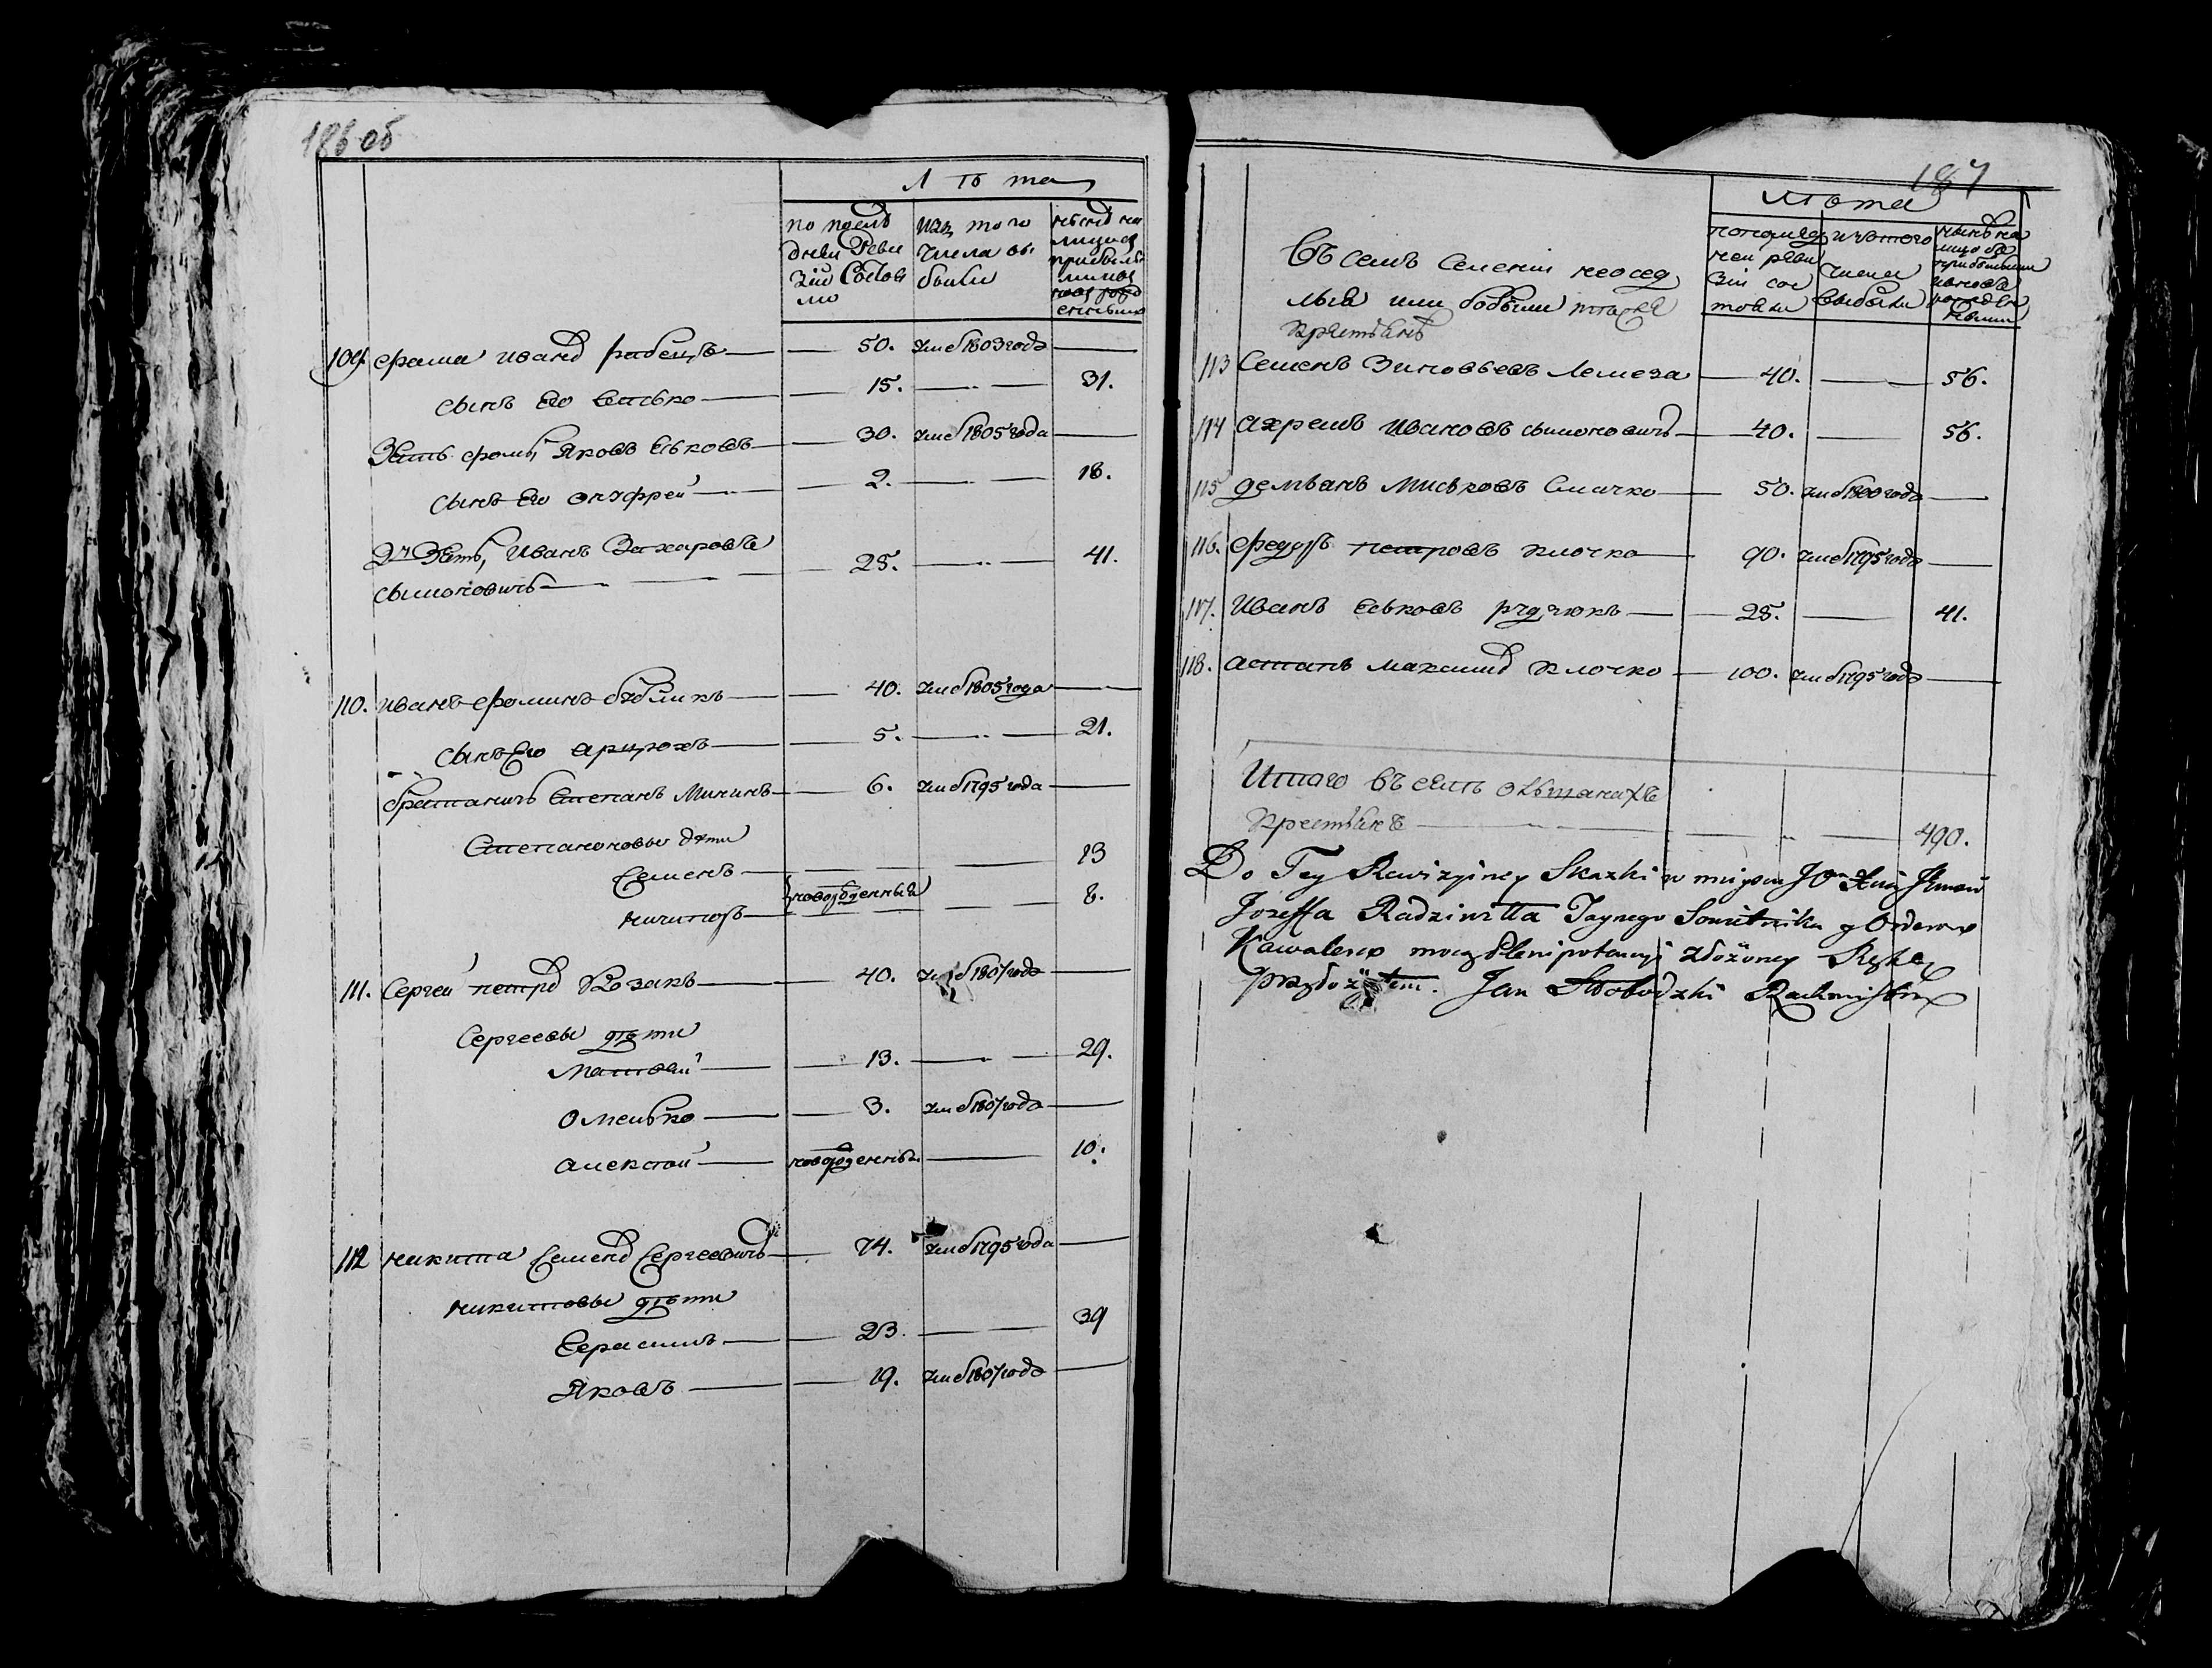 186 об
Лѣта
по послѣ
дней Реви
зіи Состоя
ло
изъ того
числа вы
были
нынѣ на
лицо съ
прибылы
ми и но
ворожд
енными
109. Фома Иванов Рабецъ — 50. Уме. 1803 года —
сынъ Его Есько — 15. — 31.
Зять Фомы Яковъ Еськовъ — 30. Уме. 1805 года —
сынъ Его Онуфрей — 2. — 18.
2й Зять, Иванъ Захаровъ
сымоновичъ — 25. — 41.
110. Иванъ Фоминъ бубликъ — 40. Уме. 1805 года —
сынъ Его — 5. — 21.
братаничъ Степанъ Мининъ — 6. Уме. 1795 года —
Степановы дѣти
Семенъ — 13
новорожденныя
Никиторъ — 8.
111. Сергей петров Козакъ — 40. Уме. 1807 года —
Сергеевы дѣти
Матвей — 13. — 29.
Омелько — 3. Уме. 1807 года —
Алексей — новорожденны — 10.
112 Никита Семенов Сергеевичъ — 74. Уме. 1795 года —
Никитовы дѣти
Герасимъ — 23. — 39
Яковъ — 19. Уме. 1807 года —
187
Лѣта
Въ семъ Селеніи неосед
лыя или бобыли
крестьянъ
последней реви
зіи сос
тояли
ис того
числа
выбыли
нынѣ на
лицо съ
прибылыми
113 Семенъ Зиновьевъ Лемеза — 40. — 56.
114 Ахремъ Ивановъ сымоновичъ — 40. — 56.
115 демьянъ Миськовъ Сличко — 50. Уме. 1800 года —
116. Федоръ петровъ клочко — 90. Уме. 1795 года —
117. Иванъ Еськовъ рудчюкъ — 25. — 41.
118. Астапъ Максимов клочко — 100. Уме. 1795 года —
Итого въ сихъ
крестьянъ — 490.
Do Tey Rewizyiney Skazki w mieyscu JO Xcia Jmci
Jozeffa Radziwiłła Taynego Sowietnika y Orderow
Kawalera mocą Plenipotencyi złożoney Rękę
przyłożyłem. Jan Słobodzki Rachmistrz